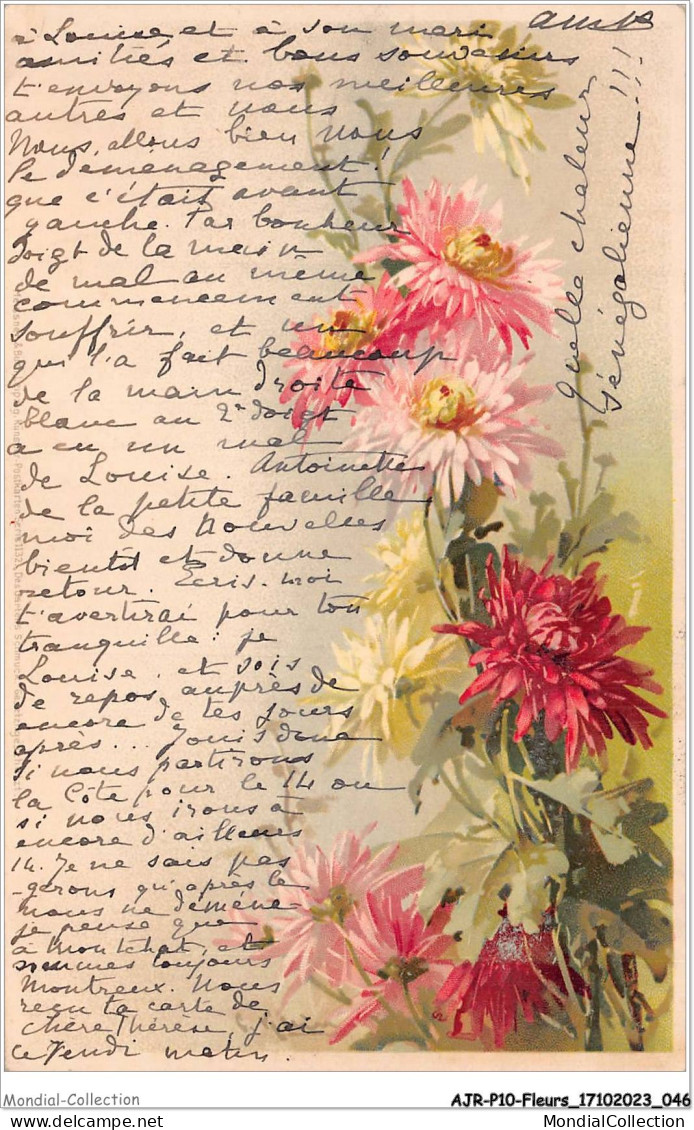 Ce Jeudi matin
Chère Thérèse, j'ai
reçu ta carte de
Montreux. Nous
sommes toujours
à Montchat, et
je pense que
nous ne démena
-gerons qu'après le
14. Je ne sais pas
encore d'ailleurs
si nous irons à
la Côte pour le 14 ou
si nous partirons
après... Jouis donc
encore de tes jours
de repos auprès de
Louise, et sois
tranquille : je
t'avertirai pour ton
retour. Ecris-moi
bientôt et donne
moi des nouvelles
de la petite famille
de Louise. Antoinette
a eu un mal
blanc au 2e doigt
de la main droite
qui l'a fait beaucoup
souffrir, et un
commencement
de mal au même
doigt de la main
gauche. Par bonheur
que c'était avant
le déménagement !
Nous allons bien nous
autres et nous
t'envoyons nos meilleures
amitiés et bons souvenirs
à Louise et à son mari
Quelle chaleur
sénégalienne !!!
Mondial-Collection
AJR-P10-Fleurs_17102023_046
MondialCollection